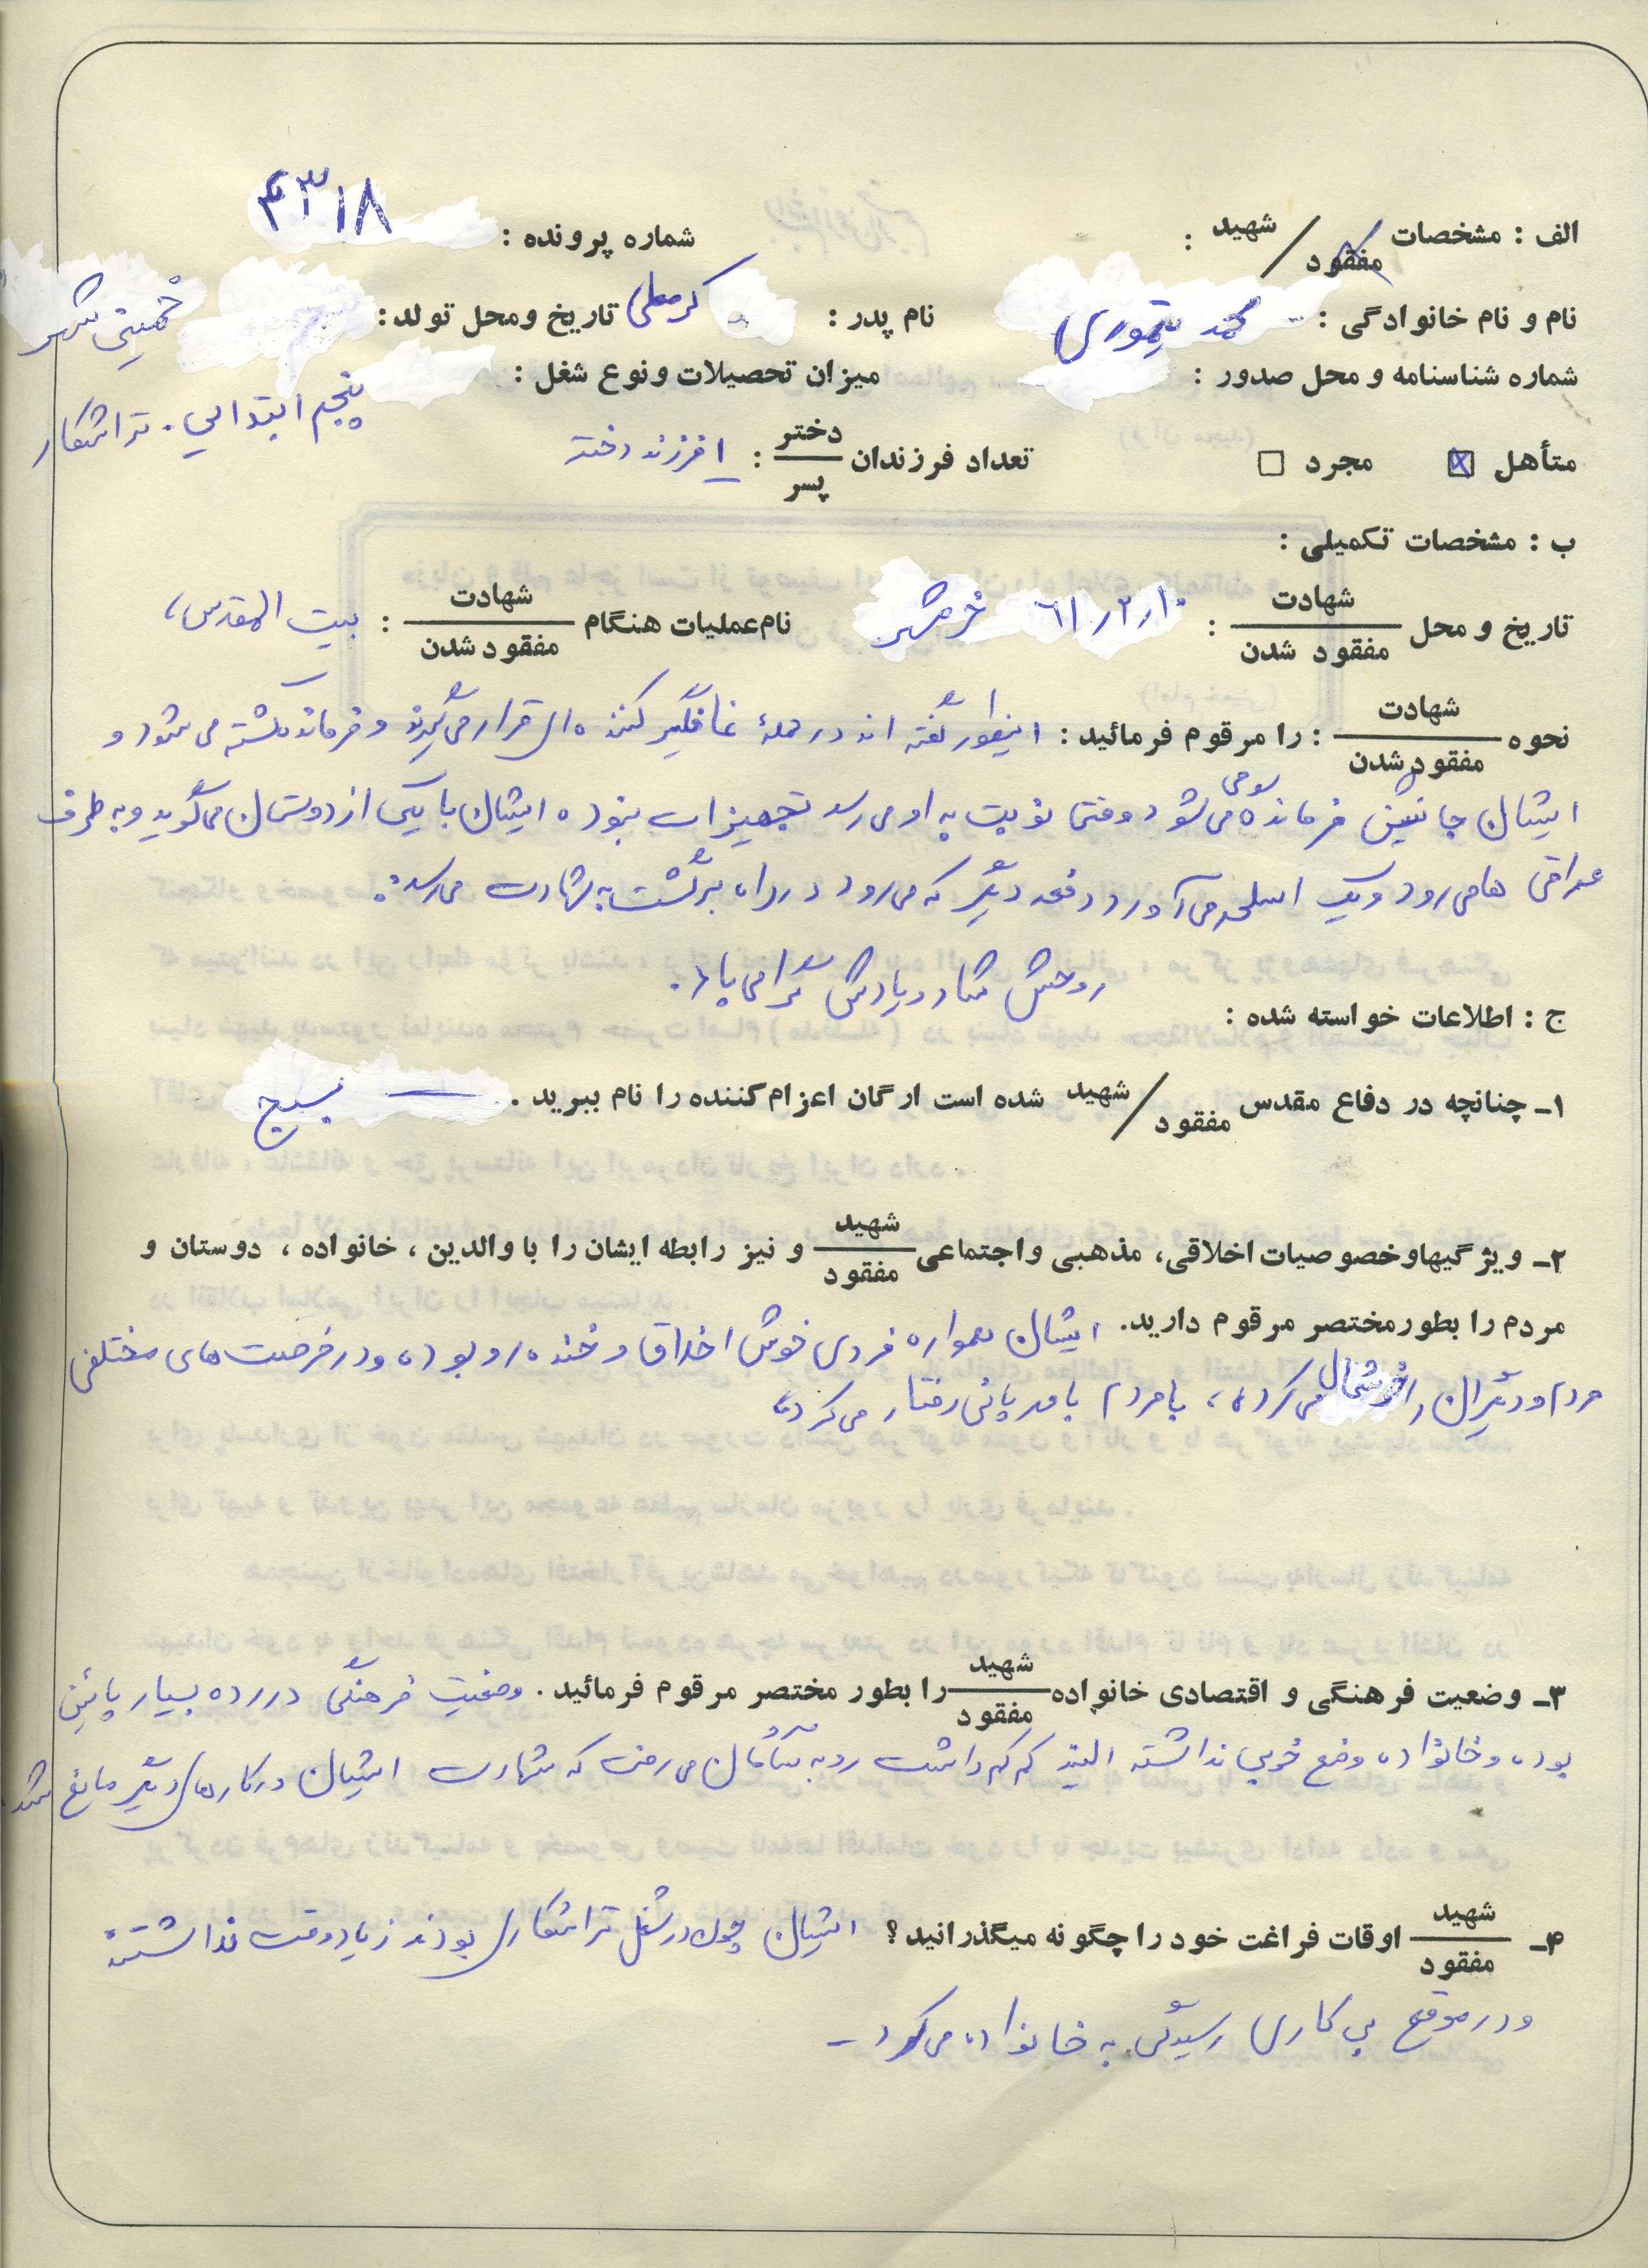 الف : مشخصات شهید / مفقود :
شماره پرونده : ۴۳۱۸
نام و نام خانوادگی : محمد تیموری نام پدر : کرمعلی تاریخ ومحل تولد: خمینی شهر
شماره شناسنامه و محل صدور : میزان تحصیلات ونوع شغل : پنجم ابتدایی . تراشکار
متأهل ☒ مجرد ☐ تعداد فرزندان دختر / پسر : ۱ فرزند دختر
ب : مشخصات تکمیلی :
تاریخ و محل شهادت / مفقود شدن : ۶۱/۲/۱۰ خرمشهر نام عملیات هنگام شهادت / مفقود شدن : بیت المقدس
نحوه شهادت / مفقود شدن : را مرقوم فرمائید : اینطور گفته اند در حملهٔ غافلگیر کننده ای قرار می گیرند و فرمانده کشته می شود و
ایشان جانشین فرمانده سومی می شود وقتی نوبت به او می رسد تجهیزات نبوده ایشان با یکی از دوستان می گوید و به طرف
عراقی ها می رود و یک اسلحه می آورد دفعه دیگر که می رود در راه برگشت به شهادت می رسد.
روحش شاد و یادش گرامی باد.
ج : اطلاعات خواسته شده :
۱ـ چنانچه در دفاع مقدس شهید / مفقود شده است ارگان اعزام کننده را نام ببرید . بسیج
۲ـ ویژگیهاوخصوصیات اخلاقی، مذهبی واجتماعی شهید / مفقود و نیز رابطه ایشان را با والدین ، خانواده ، دوستان و
مردم را بطورمختصر مرقوم دارید. ایشان همواره فردی خوش اخلاق و خنده رو بوده ودر فرصت های مختلفی
مردم و دیگران را خوشحال می کرده، با مردم با مهربانی رفتار می کرده
۳ـ وضعیت فرهنگی و اقتصادی خانواده شهید / مفقود را بطور مختصر مرقوم فرمائید . وضعیت فرهنگی در رده بسیار پائین
بوده و خانواده وضع خوبی نداشته البته کم کم داشت رو به تکامل می رفت که شهادت ایشان در کارهای دیگر مانع شد.
۴ـ شهید / مفقود اوقات فراغت خود را چگونه میگذرانید؟ ایشان چون در شغل تراشکاری بودند زیاد وقت نداشتند
و در موقع بی کاری رسیدگی به خانواده می کرد ـ